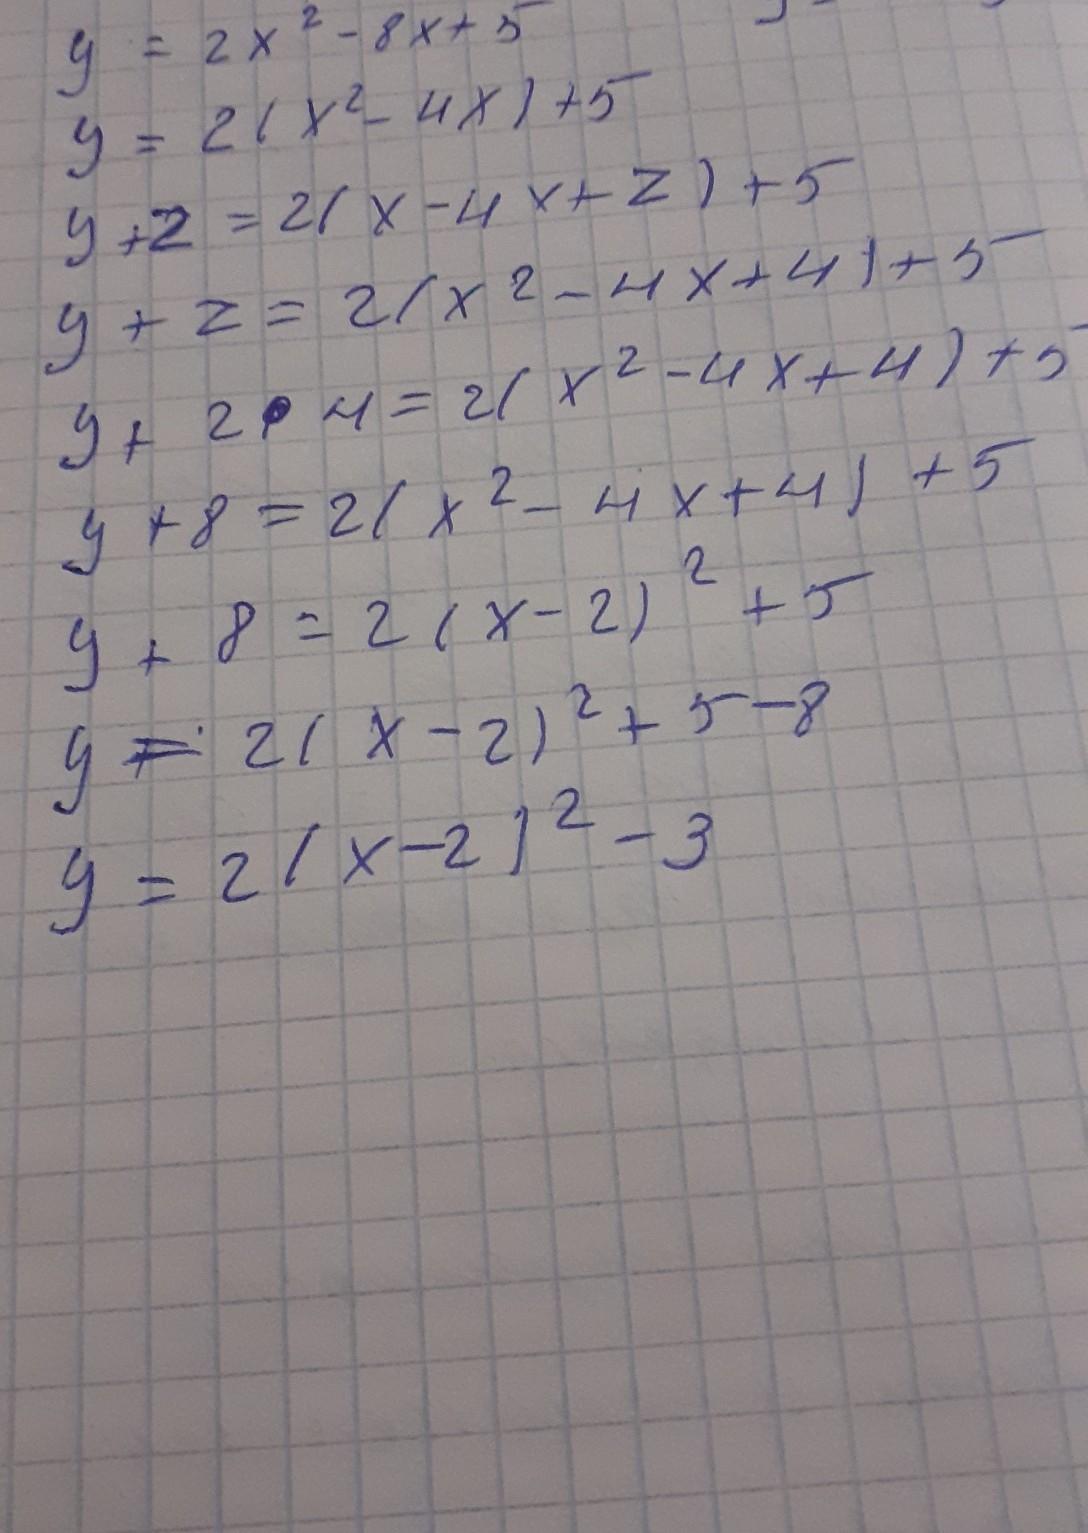 y = 2x² - 8x + 5
y = 2(x² - 4x) + 5
y + 2 = 2(x - 4x + z) + 5
y + z = 2(x² - 4x + 4) + 5
y + 2 • 4 = 2(x² - 4x + 4) + 5
y + 8 = 2(x² - 4x + 4) + 5
y + 8 = 2(x - 2)² + 5
y = 2(x - 2)² + 5 - 8
y = 2(x - 2)² - 3